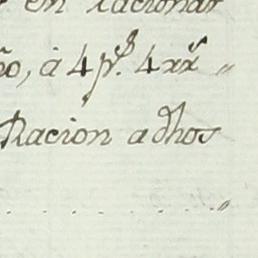 en Racionar
ño, à 4 p.s 4 xx.s „
Racion a dhos
„